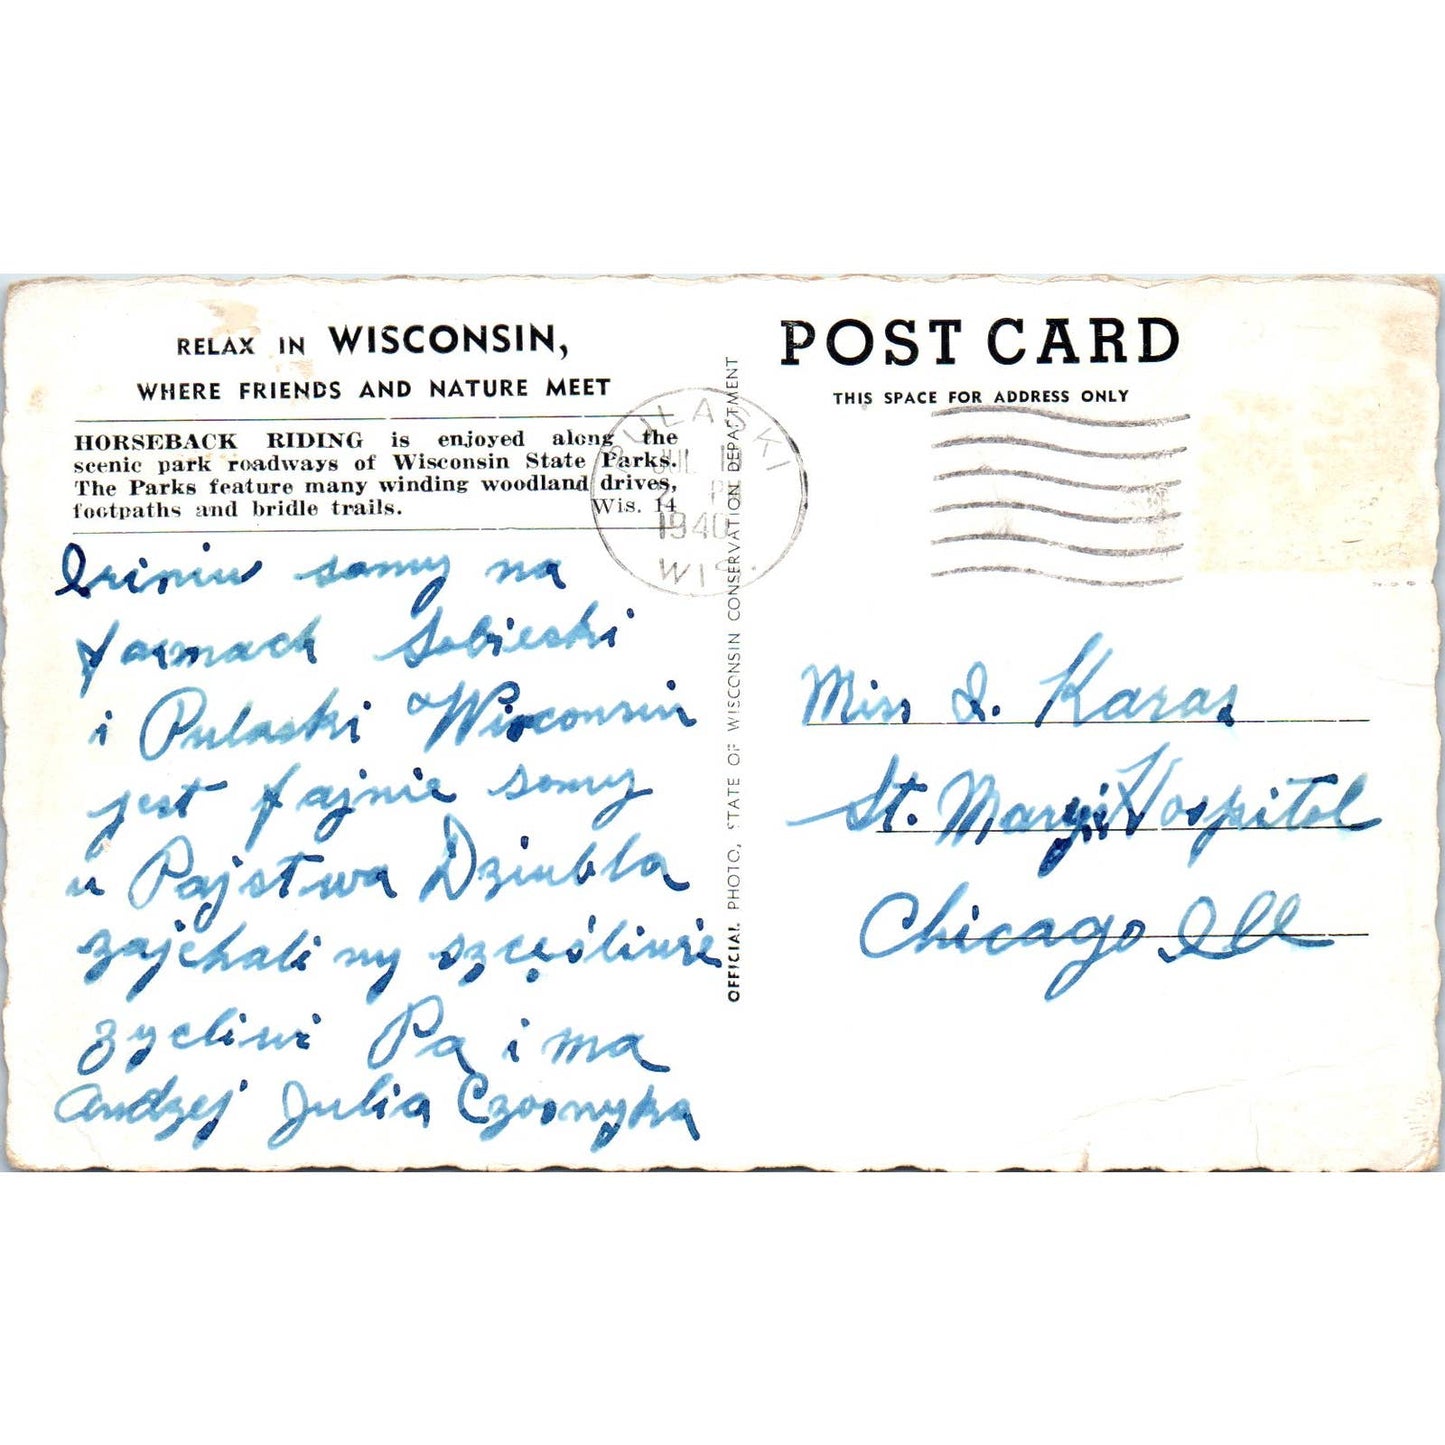 RELAX IN WISCONSIN,
WHERE FRIENDS AND NATURE MEET
HORSEBACK RIDING is enjoyed along the
scenic park roadways of Wisconsin State Parks.
The Parks feature many winding woodland drives,
footpaths and bridle trails. Wis. 14
Iriniu somy na
farmach Sobieski
i Pulaski Wisconsin
jest fajnie somy
u Pajstwa Dziubla
zajehali my szczęśliwie
zycliwi Pa i ma
Andzej Julia Czosnyka
OFFICIAL PHOTO, STATE OF WISCONSIN CONSERVATION DEPARTMENT
PULASKI
JUL
1940
WIS.
POST CARD
THIS SPACE FOR ADDRESS ONLY
Miss I. Karas
St. Marys Hospital
Chicago Ill